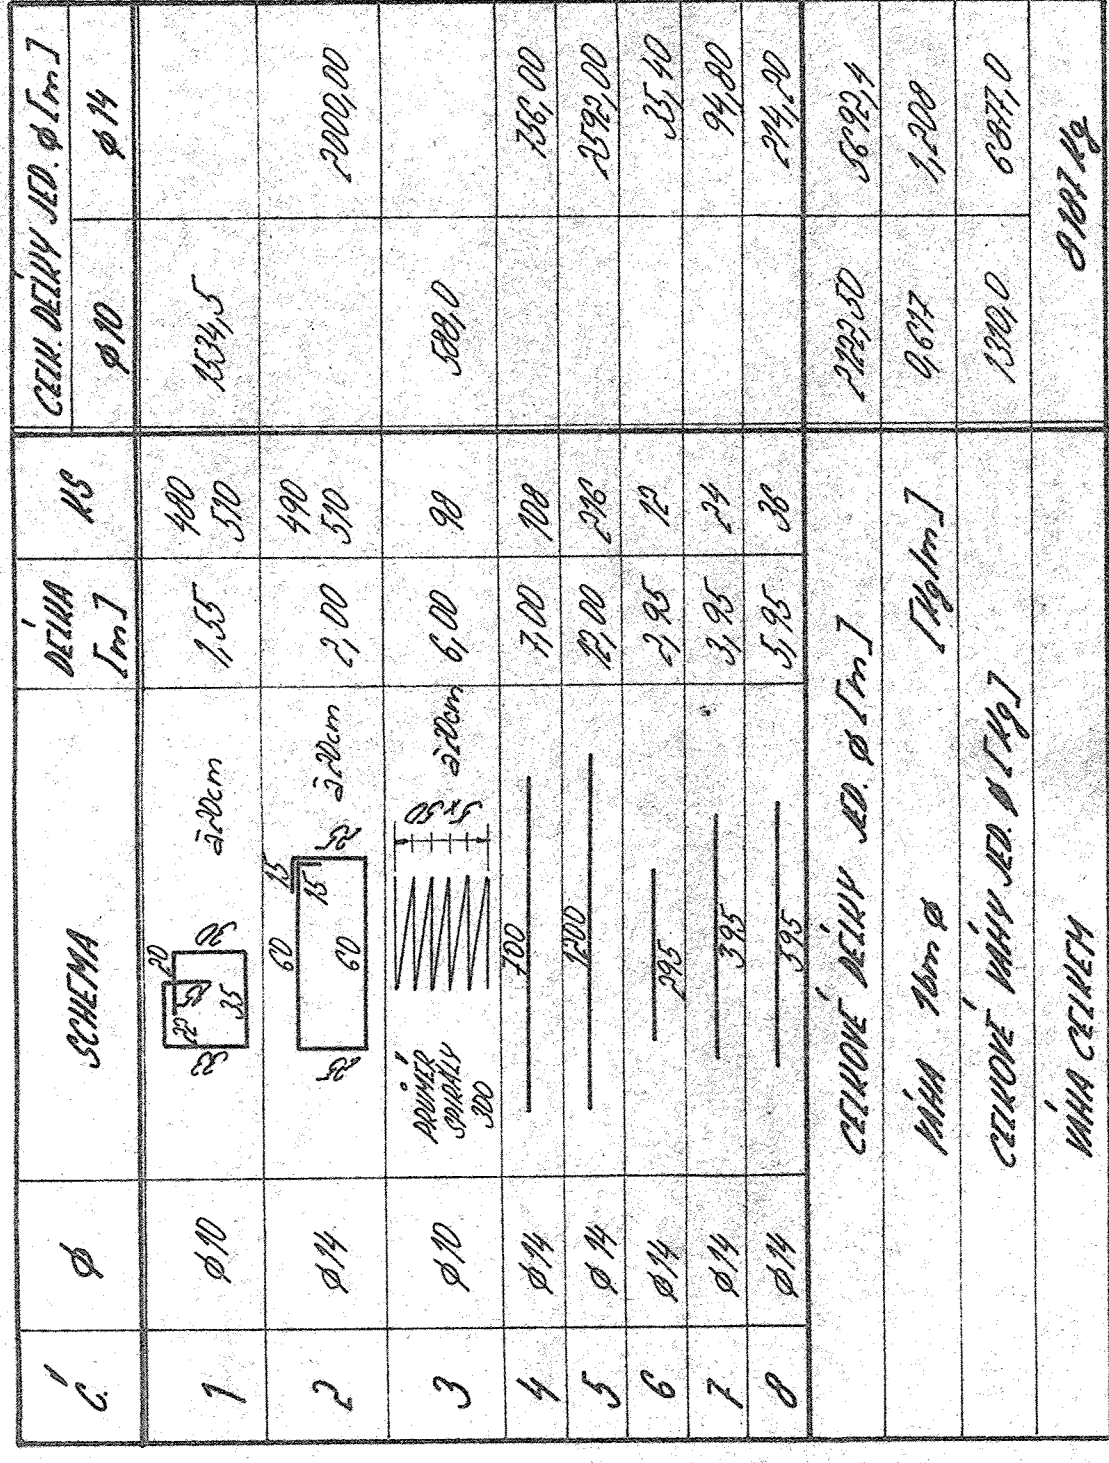 Č. Ø SCHEMA DÉLKA [m] KS CELK. DÉLKY JED. Ø [m]
Ø10 Ø14
1 Ø10 33 22 15 35 20 50 à20cm 1,55 480 1534,5
510
2 Ø14 25 60 60 15 15 25 à20cm 2,00 490 2000,00
510
3 Ø10 PRŮMĚR SPIRÁLY 300 5×50 à20cm 6,00 98 588,0
4 Ø14 700 7,00 108 756,00
5 Ø14 1200 12,00 216 2592,00
6 Ø14 295 2,95 12 35,40
7 Ø14 395 3,95 24 94,80
8 Ø14 595 5,95 36 214,20
CELKOVÉ DÉLKY JED. Ø [m] 2122,50 5692,4
VÁHA 1bm Ø [kg/m] 0,617 1,208
CELKOVÉ VÁHY JED. Ø [kg] 1310,0 6877,0
VÁHA CELKEM 8187 kg